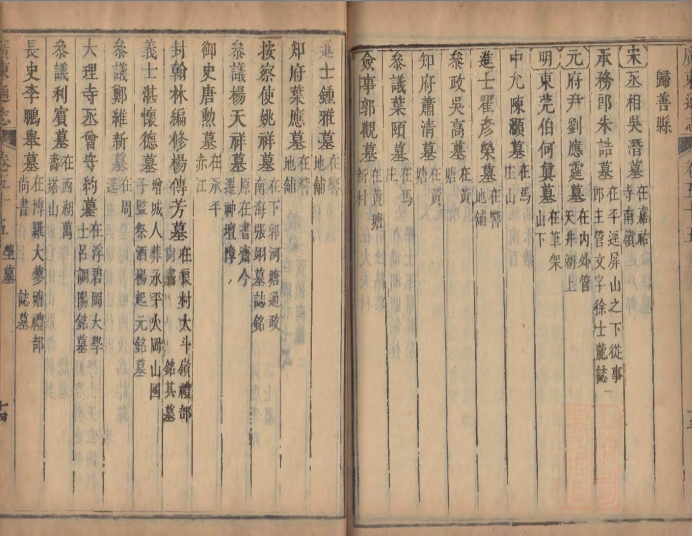 廣東通志 卷五十五
歸善縣
宋丞相吳潛墓 在嘉祐寺南嶺
承務郎朱誥墓 在平逕屏山之下從事郎主管文字徐士龍誌
元府尹劉應霆墓 在內外管天井湖上
明東莞伯何真墓 在筆架山下
中允陳灝墓 在馬庄山
進士翟彥榮墓 在響地舖
參政吳高墓 在黃塘
知府蕭清墓 在黃塘
參議葉頤墓 在馬庄
僉事郭觀墓 在黃塘新村
進士鍾雅墓 在響地舖
知府葉應墓 在響地舖
按察使姚祥墓 在下郭河塘通政南海張詡墓誌銘
參議楊天祥墓 原在書齋今遷神壇障
御史唐勲墓 在永平赤江
封翰林編修楊傳芳墓 在艮村大斗嶺禮部尚書 銘其墓
義士湛懷德墓 增城人葬永平大岡山國子監祭酒楊起元銘墓
參議鄭維新墓 在周逕
大理寺丞曾守約墓 在浮碧岡大學士呂調陽銘墓
參議利賓墓 在西湖萬壽塔山
長史李鵬舉墓 在博羅大夢塘禮部尚書 誌墓
廣東通志 卷五十五 塋墓 十四